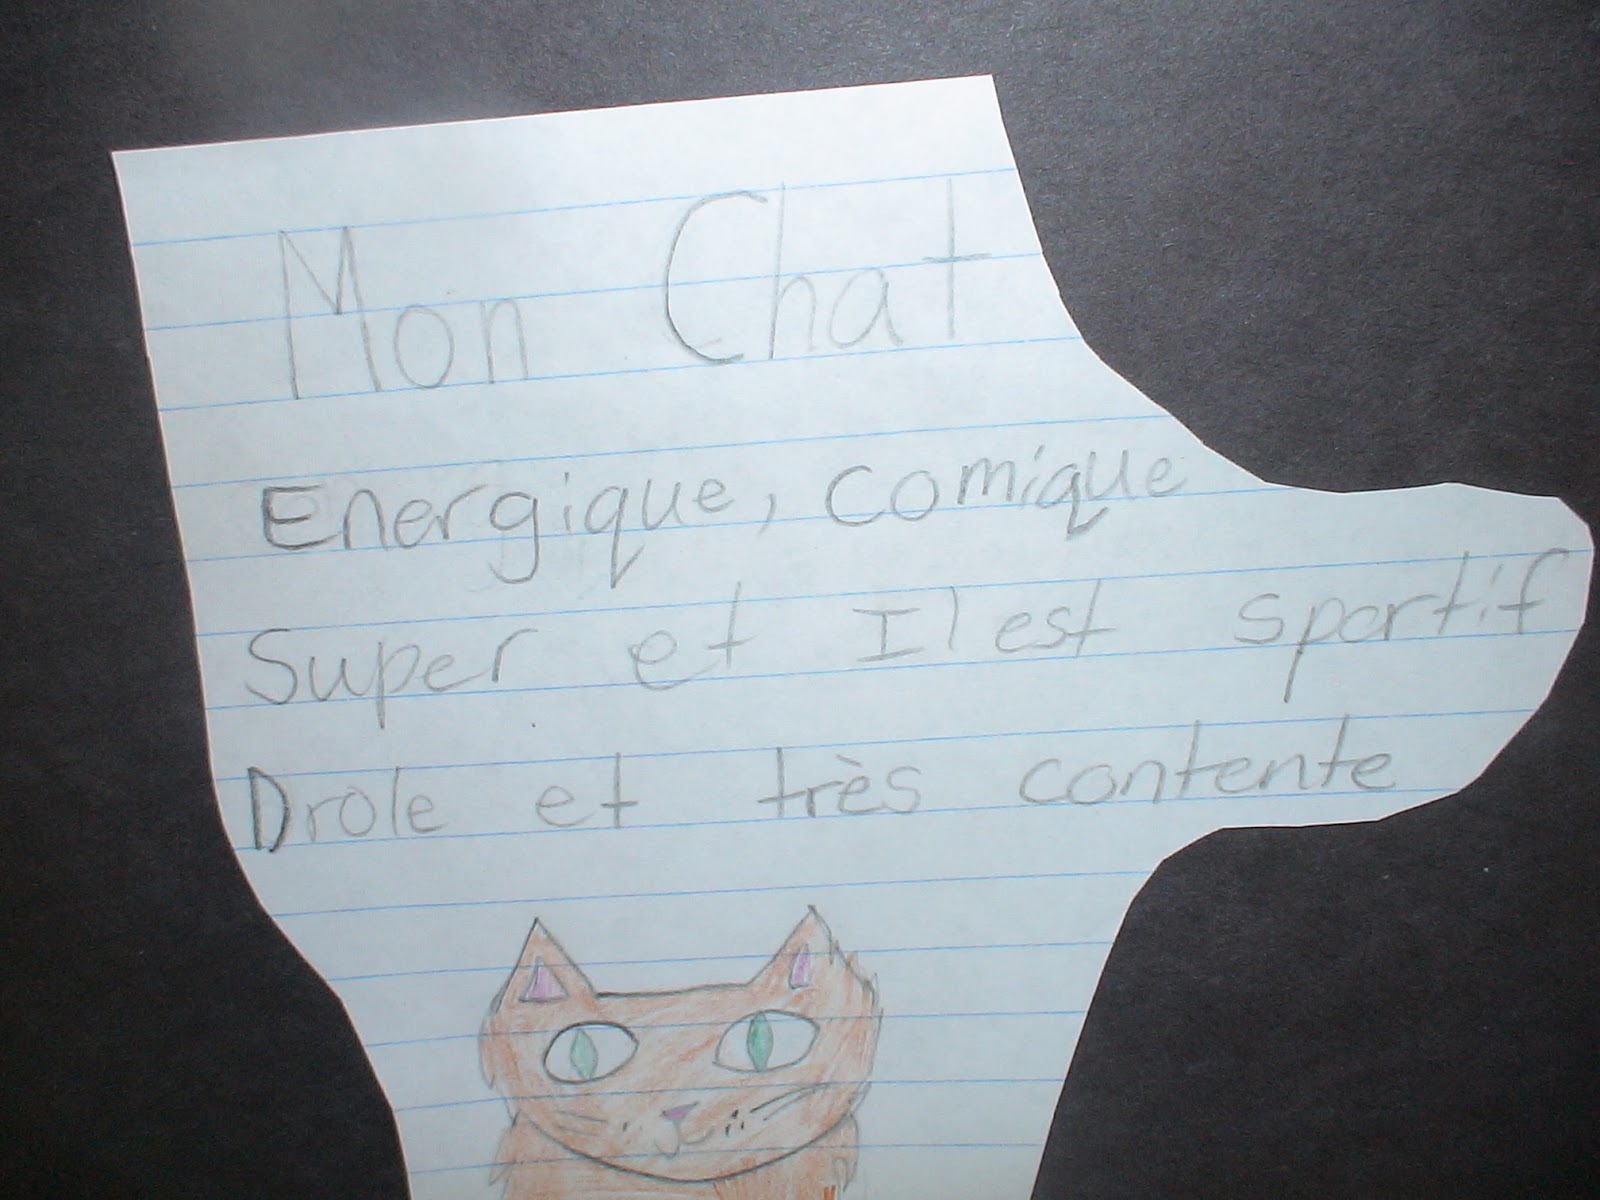 Mon Chat
Energique, comique
Super et Il est sportif
Drole et très contente